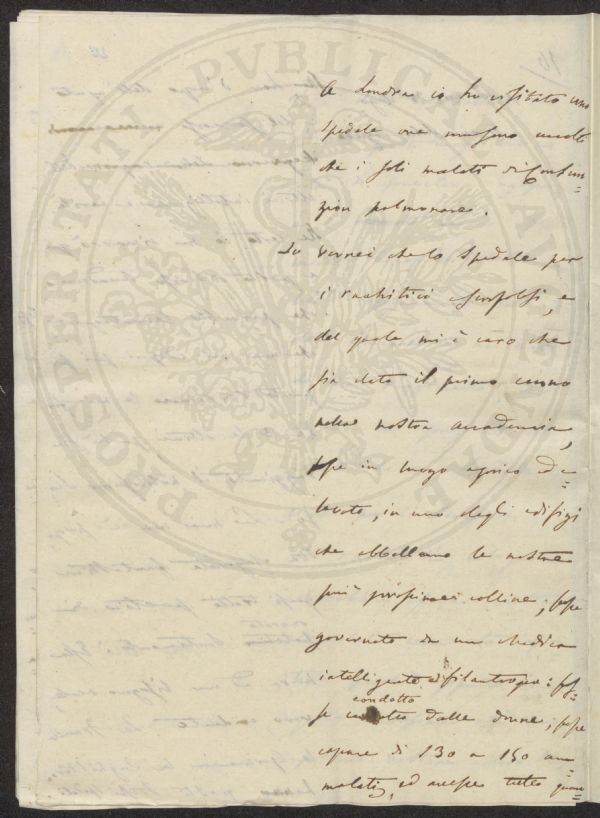 A Londra io ho visitato uno
Spedale ove non sono accolti
che i soli malati di Consun=
zion polmonare.
Io vorrei che lo Spedale per
i rachitici scrofolosi, e
del quale mi è caro che
sia dato il primo cenno
nella nostra Accademia,
fosse in luogo aprico ed e=
levato, in uno degli edifizj
che abbellano le nostre
più prossime colline; fosse
governato da un Medico
intelligente e filantropo: fos=
condotto
se dalle donne; fosse
capace di 130 a 150 am=
malati, ed avesse tutto quan=
PROSPERITATI PUBLICAE